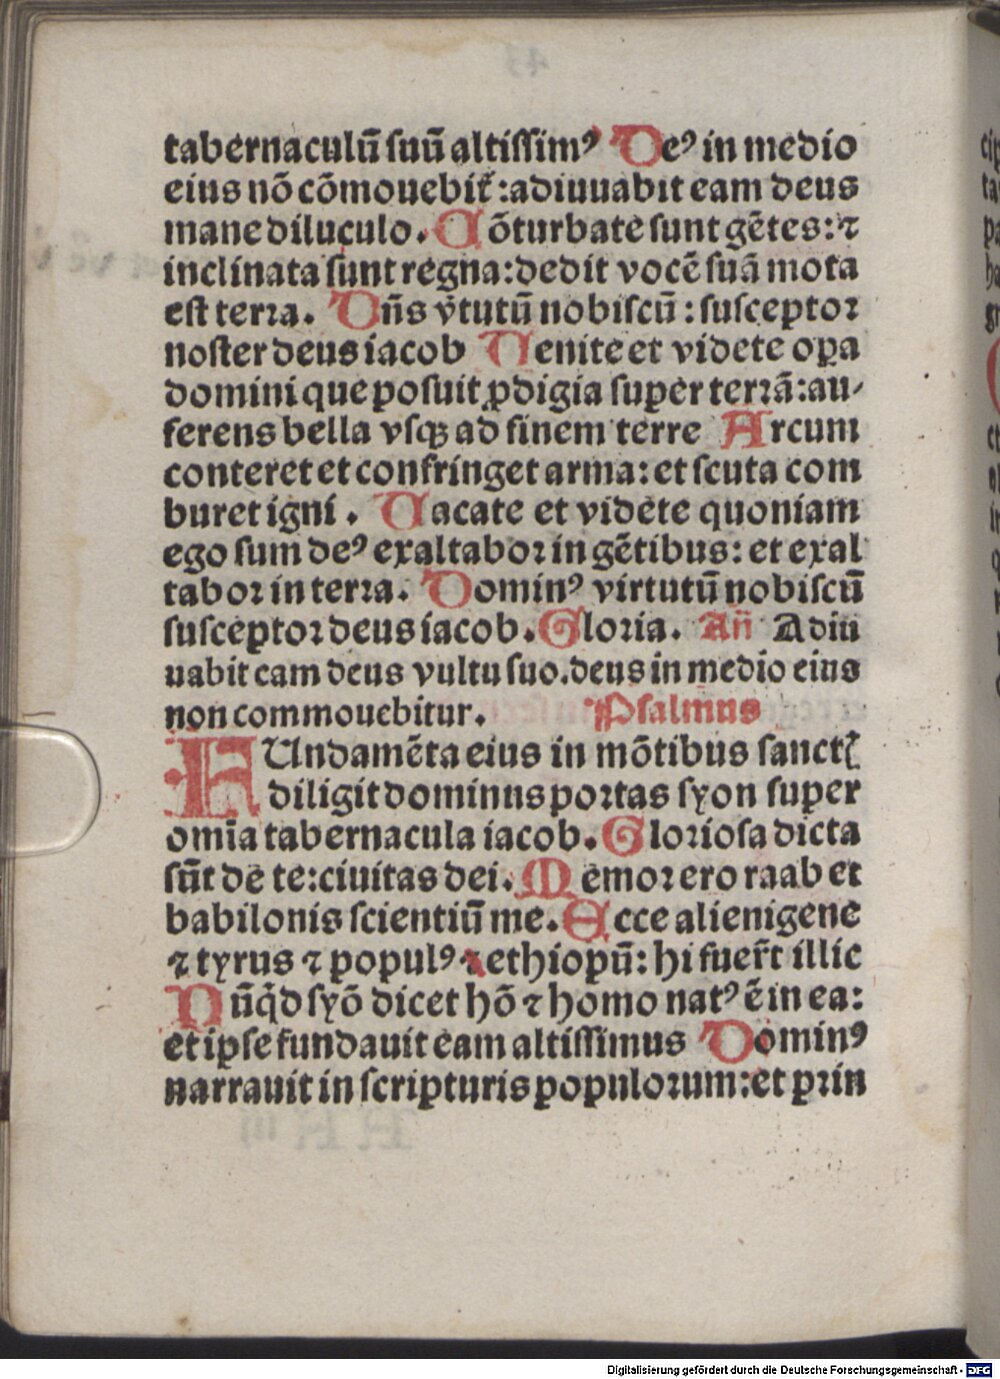 tabernaculū suū altissimꝰ Deꝰ in medio
eius nō cōmouebit̃ : adiuuabit eam deus
mane diluculo. Cōturbate sunt gētes: ⁊
inclinata sunt regna: dedit vocē suā mota
est terra. Dn̄s v̾tutū nobiscū : susceptor
noster deus iacob Uenite et videte oꝑa
domini que posuit ꝓdigia super terrā: au⸗
ferens bella vsqꝫ ad finem terre Arcum
conteret et confringet arma: et scuta com
buret igni . Uacate et videte quoniam
ego sum deꝰ exaltabor in gētibus: et exal
tabor in terra. Dominꝰ virtutū nobiscū
susceptor deus iacob. Gloria. An̄ Adiu
uabit eam deus vultu suo. deus in medio eius
non commouebitur. Psalmus
FUndamēta eius in mōtibus sanctꝭ
diligit dominus portas syon super
om̄ia tabernacula iacob. Gloriosa dicta
sūt de te: ciuitas dei. Memor ero raab et
babilonis scientiū me. Ecce alienigene
⁊ tyrus ⁊ populꝰ ⁊ ethiopū: hi fuer̄t illic
Nūq̇d syō dicet hō ⁊ homo natꝰ ē in ea:
et ipse fundauit eam altissimus Dominꝰ
narrauit in scripturis populorum: et prin
Digitalisierung gefördert durch die Deutsche Forschungsgemeinschaft - DFG